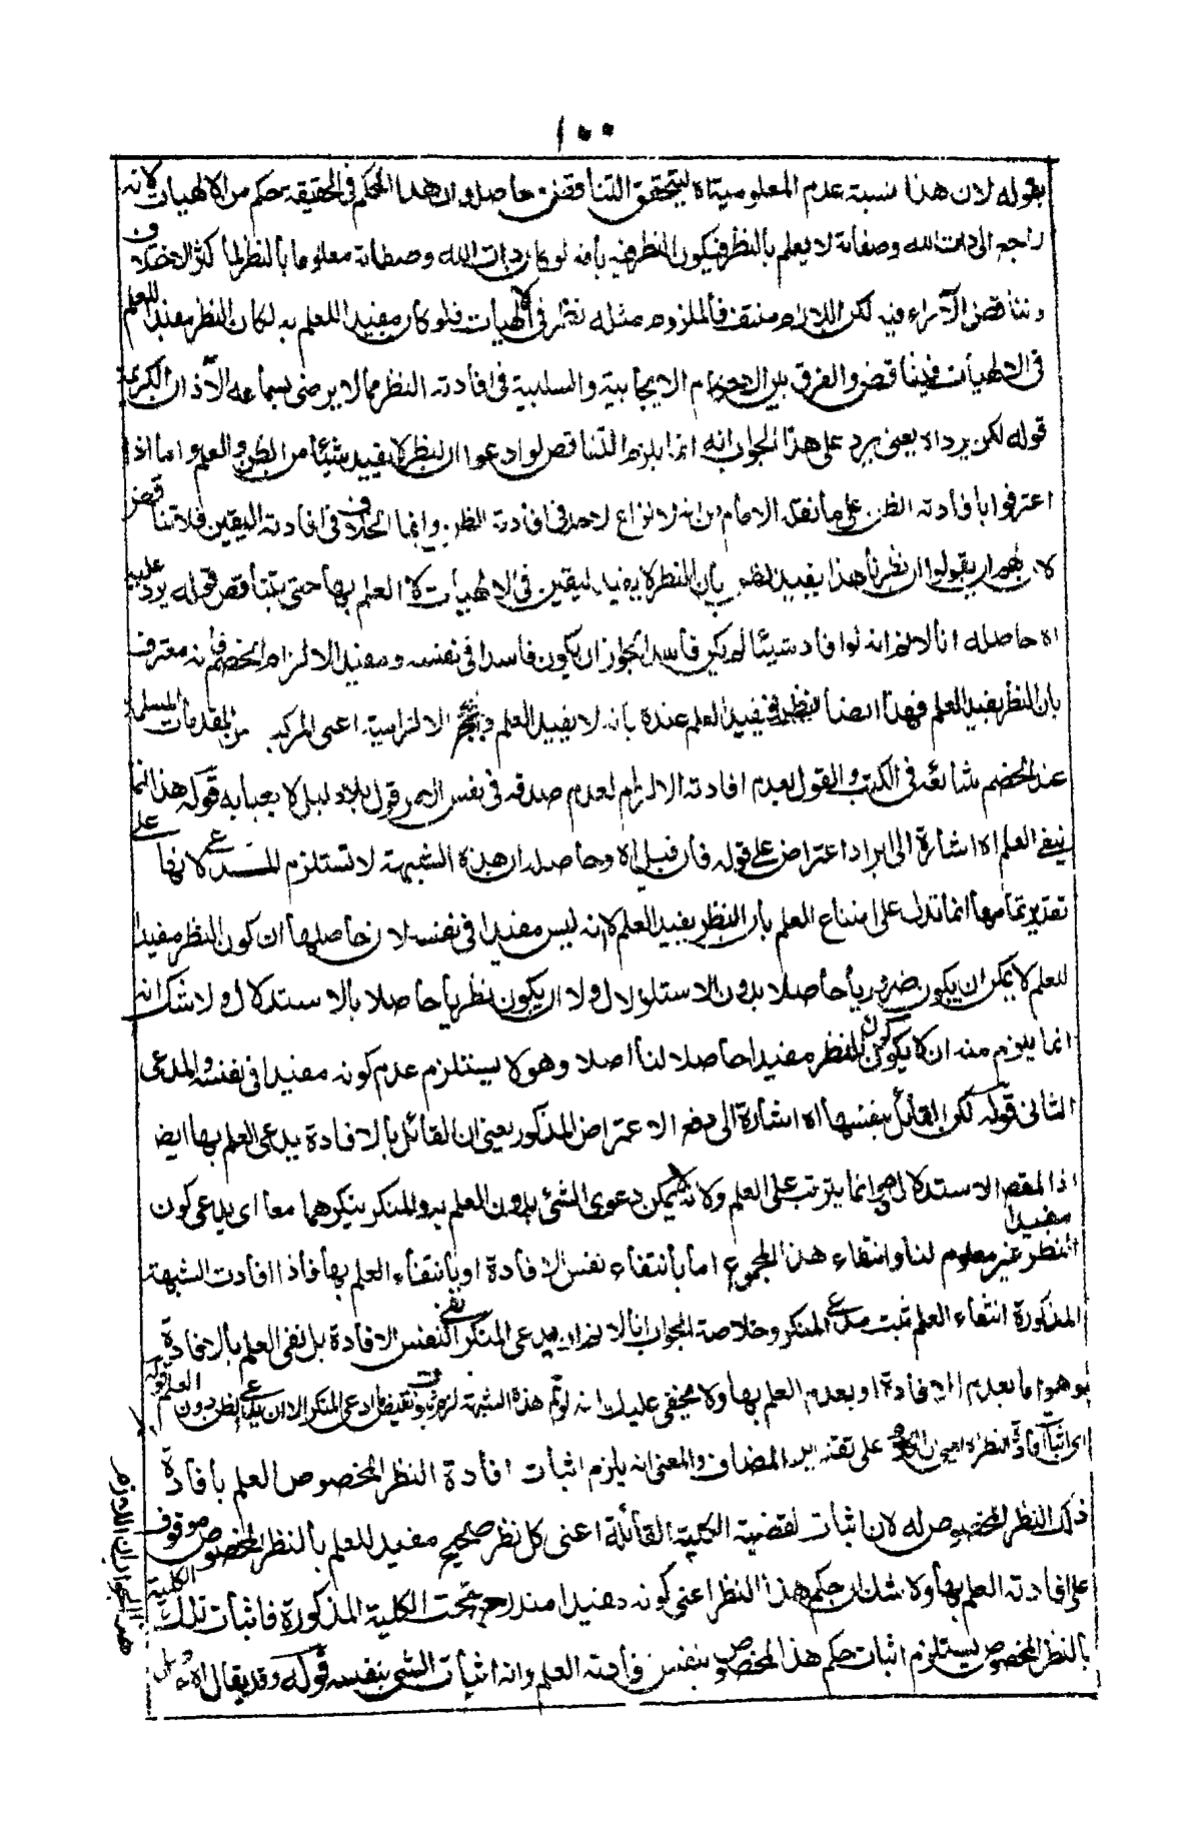 ١٠٠
بقوله لان هذا نسبة عدم المعلومية اه ليتحقق التناقض حاصله ان هذا الحكم في الحقيقة حكم من الالهيات لانه
راجع الى ذات الله وصفاته لا يعلم بالنظر فيكون النظر فيه بانه لو كان ذات الله وصفاته معلوما بالنظر لما كثر الاختلاف
وتناقض الآراء فيه لكن اللازم منتف فالملزوم مثله نظر في الهيات فلو كان مفيد اللعلم به لكان النظر مفيدا للعلم
في الالهيات فيناقض والفرق بين الاحكام الايجابية والسلبية في افادته النظر مما لا يرضى بسماعه الآذان الكريمة
قوله لكن يرد اه يعني يرد على هذا الجواب انه انما يلزم التناقض لو ادعوا ان النظر لا يفيد شيئا من الظن والعلم واما اذا
اعترفوا بافادته الظن على ما نقل الامام من انه لا نزاع لاحد في افادته الظن وانما الخلاف في افادته اليقين فلا تناقض
لان لهم ان يقولوا ان نظرنا هذا يفيد الظن بان النظر لا يفيد اليقين في الالهيات لا العلم بها حتى يتناقض قوله يرد عليه
اه حاصله انا لا نم انه لو افاد شيئا لم يكن فاسدا لجواز ان يكون فاسدا في نفسه ومفيد الالزام الخصم فانه معترف
بان النظر يفيد العلم فهذا ايضا نظر فيفيد العلم عنده بانه لا يفيد العلم والحجج الالزامية اعني المركبة من المقدمات المسلمة
عند الخصم شائعة في الكتب والقول بعدم افادته الالزام لعدم صدقه في نفس الامر قول بلا دليل لا يعبأ به قوله هذا انما
ينفي العلم اه اشارة الى ايراد اعتراض على قوله فان قيل اه وحاصله ان هذه الشبهة لا تستلزم المدعى لانها على
تقدير تمامها انما تدل على امتناع العلم بان النظر يفيد العلم لا انه ليس مفيدا في نفسه لان حاصلها ان كون النظر مفيدا
للعلم لا يمكن ان يكون ضروريا حاصلا بدون الاستدلال ولا ان يكون نظريا حاصلا بالاستدلال ولا شك انه
انما يلزم منه ان لا يكون كون النظر مفيدا حاصلا لنا اصلا وهو لا يستلزم عدم كونه مفيدا في نفسه والمدعى
الثاني قوله لكن القائل بنفسها اه اشارة الى دفع الاعتراض المذكور يعني ان القائل بالافادة يدعى العلم بها ايضا
اذ المقصد الاستدلال وهو انما يترتب على العلم ولانه لا يمكن دعوى الشئ بدون العلم به والمنكر ينكرهما معا اى يدعى كون
النظر مفيدا غير معلوم لنا وانتفاء هذا المجموع اما بانتفاء نفس الافادة او بانتفاء العلم بها فاذا افادت الشبهة
المذكورة انتفاء العلم ثبت مدعى المنكر وخلاصة الجواب انا لا نم انه يدعى المنكر نفي نفس الافادة بل نفى العلم بالافادة
وهو اما بعدم الافادة او بعدم العلم بها ولا يخفى عليك انه لو تم هذه الشبهة لزم ثبوت نقيض ما ادعى المنكر
اى اثبات افادة النظر على تقدير المضاف والمعنى انه يلزم اثبات افادة النظر المخصوص العلم بافادة
ذلك النظر المخصوص له لان اثبات القضية الكلية القائلة اعني كل نظر صحيح مفيد للعلم بالنظر المخصوص موقوف
على افادته العلم بها ولا شك ان حكم هذا النظر اعني كونه مفيدا مندرج تحت الكلية المذكورة فاثبات تلك الكلية
بالنظر المخصوص يستلزم اثبات حكم هذا المخصوص بنفس افادته العلم وانه اثبات الشئ بنفسه قوله وقد يقال اه